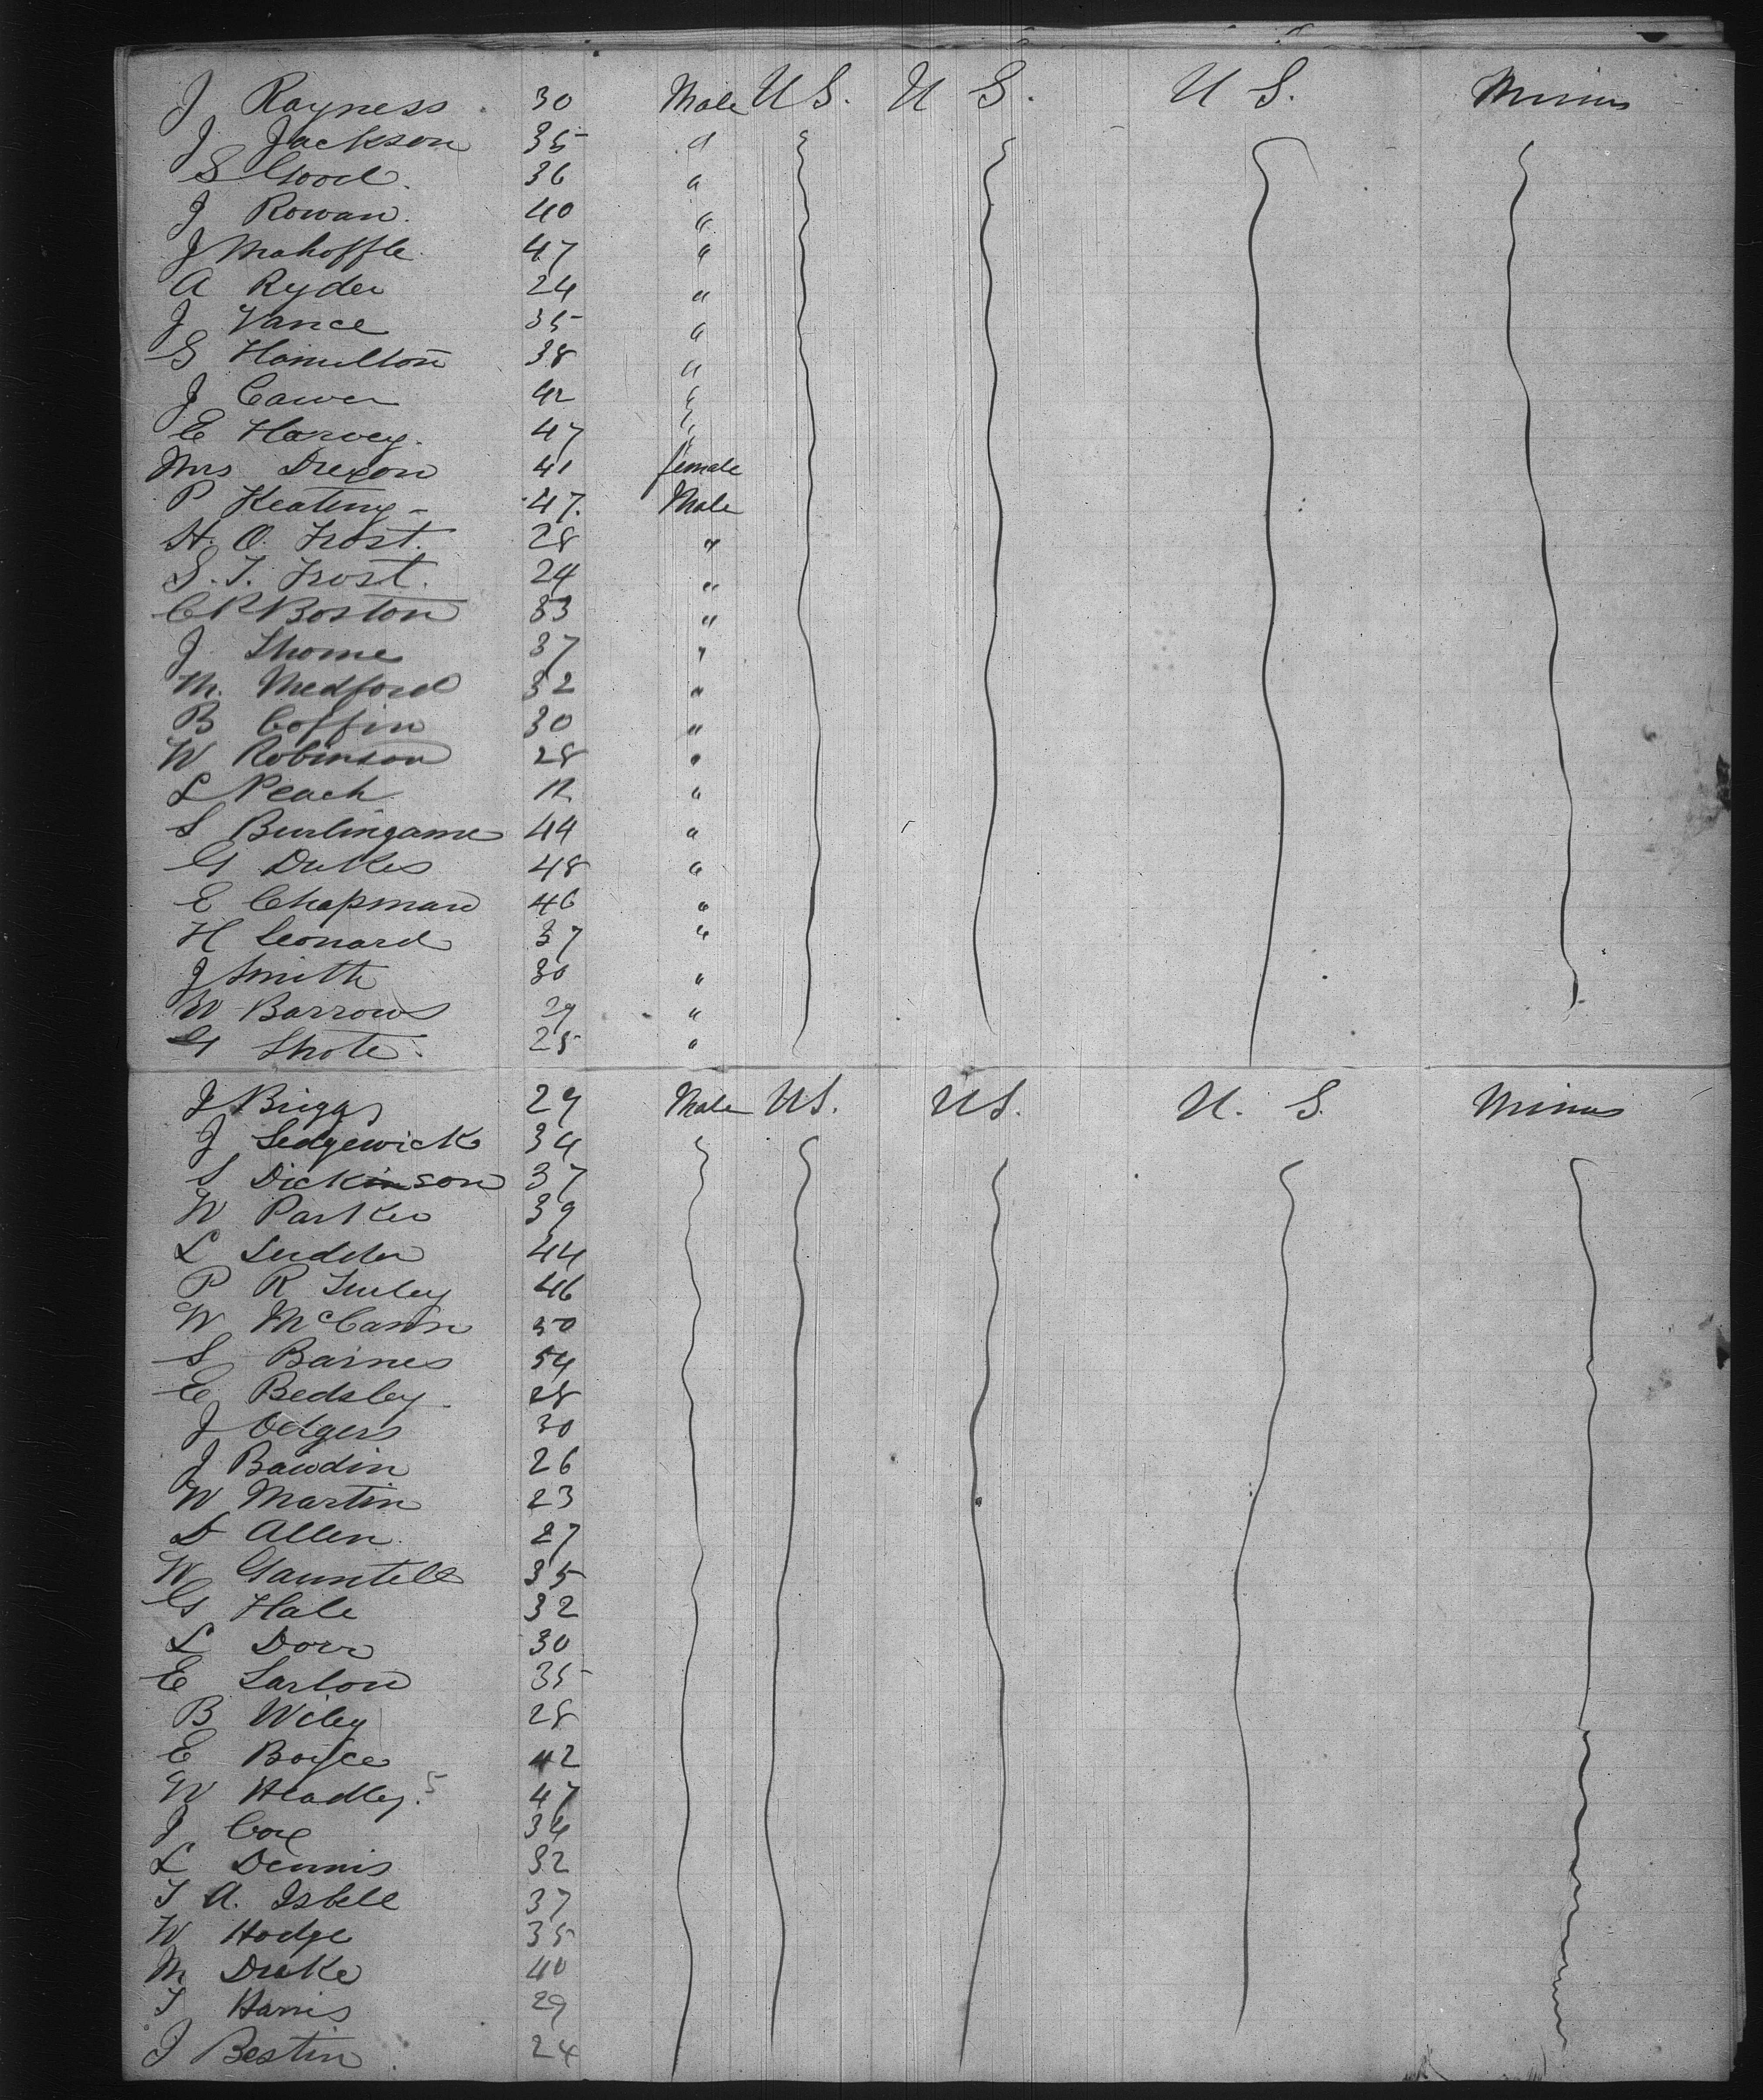 J Rayness 30 Male U S. U S. U S. Minus
J. Jackson 35 "
S Good. 36 "
J Rowan. 40 "
J Mahoffle 47 "
A Ryder 24 "
J Vance 35 "
G Hamilton 38 "
J Carver 42 "
E Harvey. 47 "
Mrs Dixon 41 female
P Keating - 47. Male
H. O. Frost. 28 "
S. T. Frost. 24 "
C R Boston 33 "
J Thorne 37 "
M. Medford 32 "
B Coffin 30 "
W Robinson 28 "
L Peach 12 "
S Burlingame 44 "
G Dukes 48 "
E Chapman 46 "
H Leonard 37 "
J Smith 30 "
W Barrows 29 "
G Shote. 25 "
J Briggs 29 Male U S. U S. U. S. Minus
J Sedgewick 34
S Dickinson 37
W Parker 39
L 44
P R 46
W McCann 50
S Barnes 54
E Bedsley. 28
J Odgers 30
J Bawdin 26
W Martin 23
D Allen. 27
W Gauntell 35
G Hale 32
L Dorr 30
E Sarlow 35
B Wiley 28
E Boyce 42
W Headley. 5 47
J Cox 34
L Dennis 32
T A. Isbell 37
W Hodge 35
M Drake 40
T Harris 29
J Bestin. 24